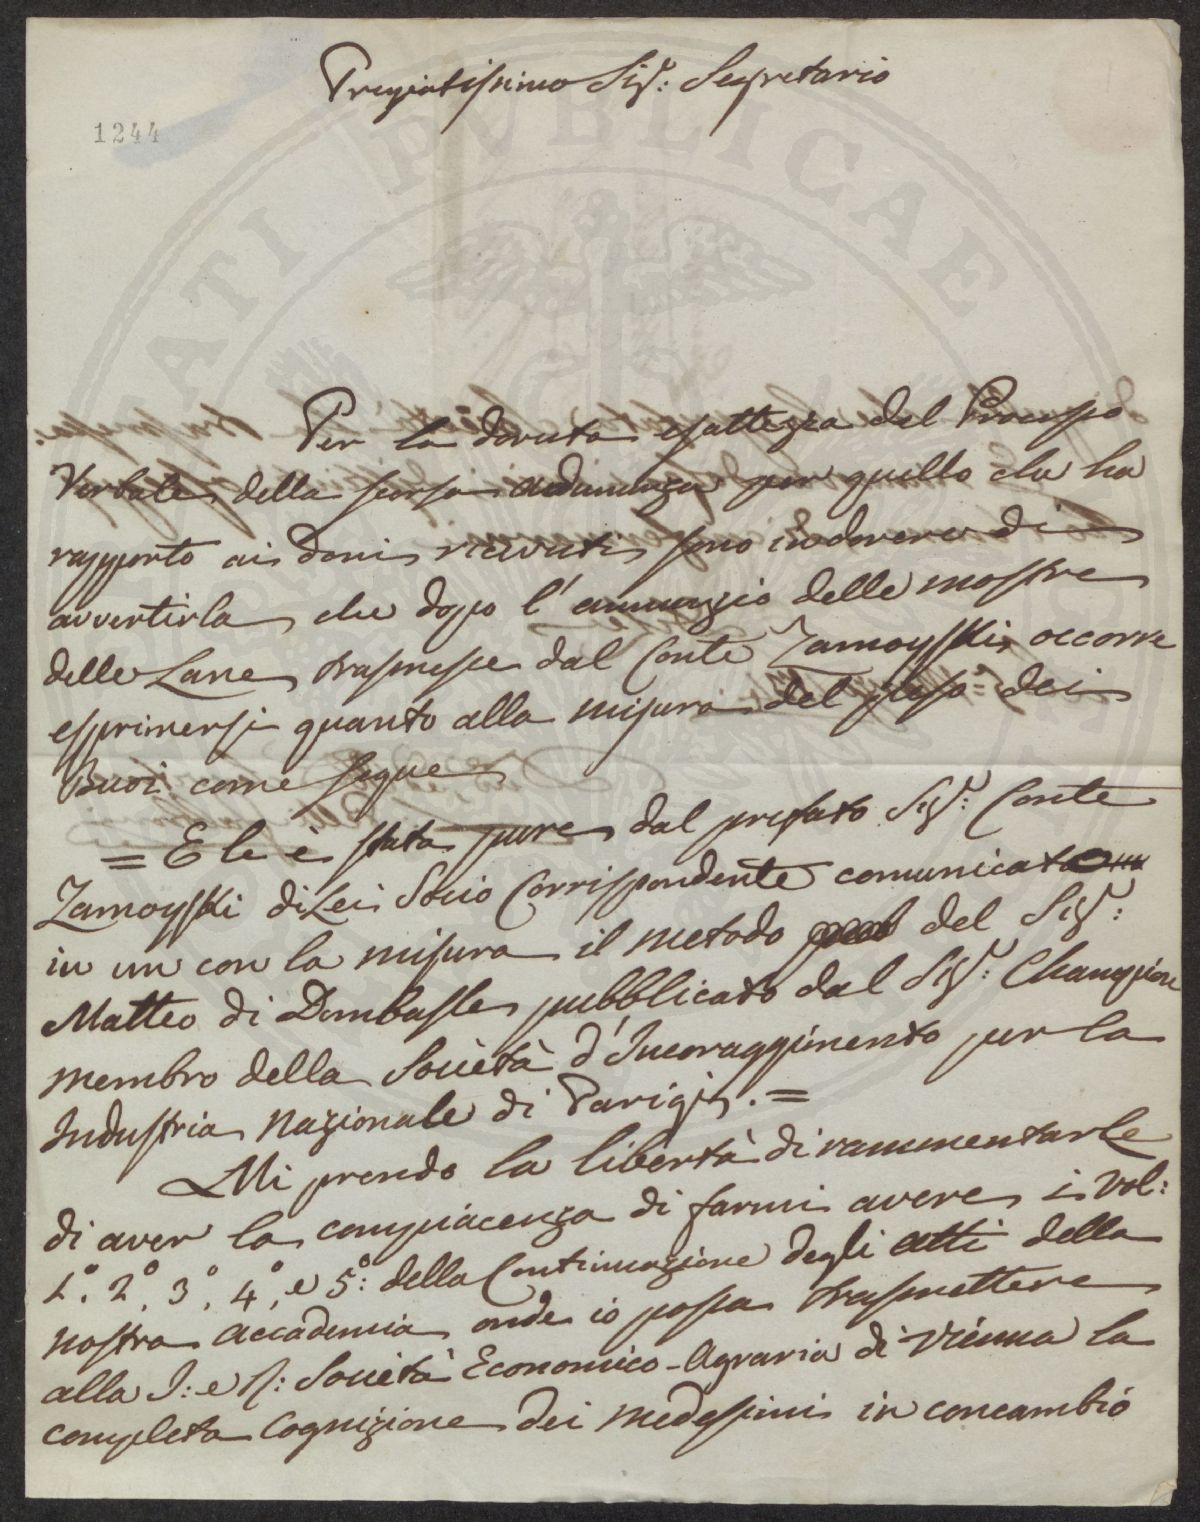 Pregiatissimo Sig.r: Segretario
1244
Per la dovuta esattezza del Processo
Verbale della scorsa adunanza per quello che ha
rapporto ai Doni ricevuti sono in dovere di
avvertirla che dopo l'annunzio delle mostre
delle Lane trasmesse dal Conte Zamoysski occorre
esprimersi quanto alla misura del peso dei
Buoi come segue
= E le è stata pure dal prefato Sig.r: Conte
Zamoysski di Lei Socio Corrispondente comunicato
in un con la misura il metodo del Sig.r:
Matteo di Dombasle pubblicato dal Sig.r: Champion
membro della Società d'Incoraggimento per la
Industria Nazionale di Parigi. =
Mi prendo la libertà di rammentarle
di aver la compiacenza di farmi avere i Vol:
1.° 2.° 3.° 4.° e 5.°: della Continuazione degli atti della
nostra accademia onde io possa trasmettere
alla I: e R: Società Economico-Agraria di Vienna la
completa Cognizione dei medesimi in concambio
PUBLICAE